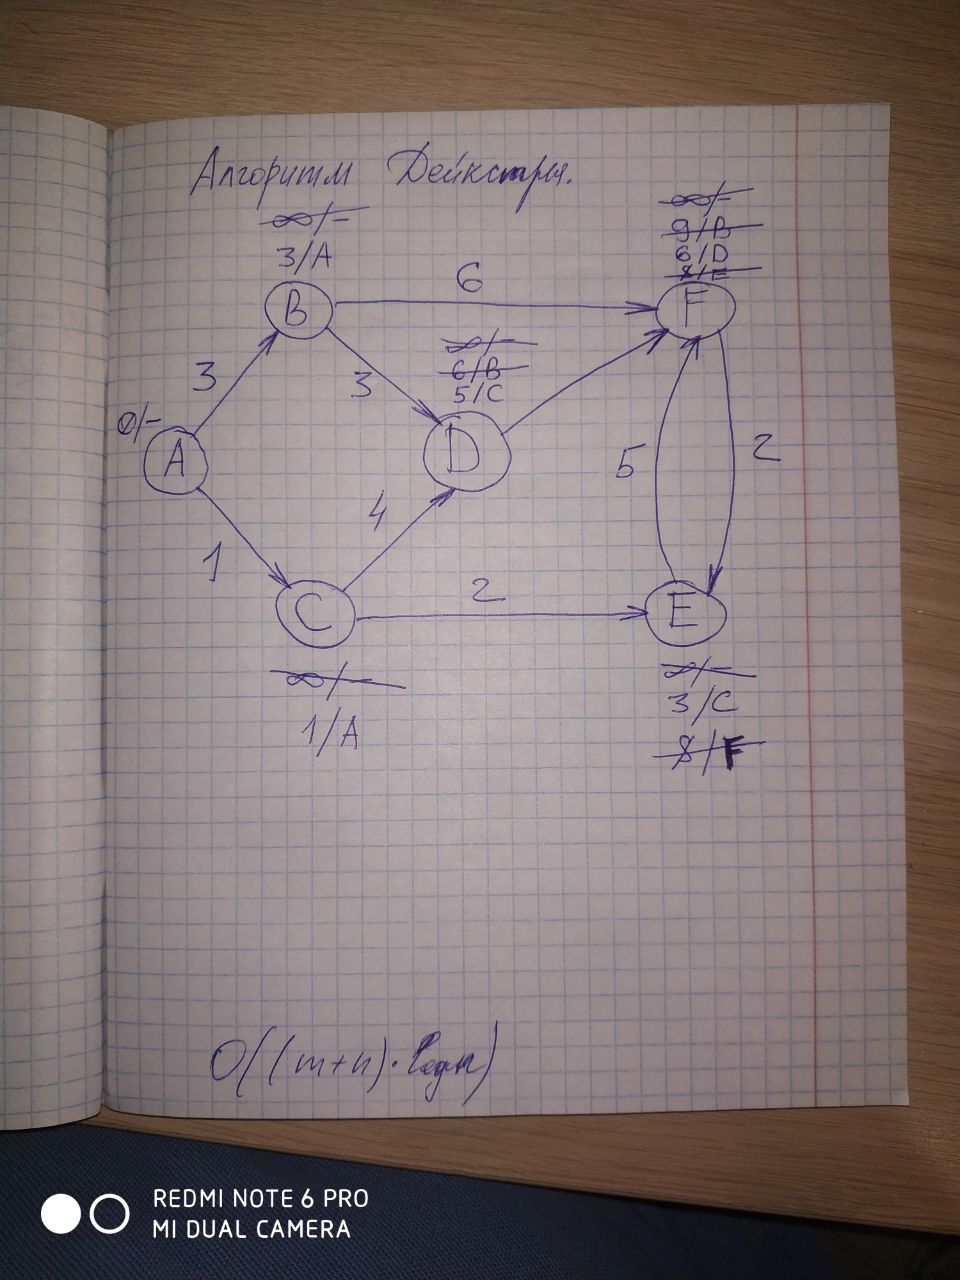 Алгоритм Дейкстры.
∞/-
3/A
∞/-
9/B
6/D
8/E
B
6
F
∞/-
6/B
5/C
3
3
0/-
A
D
5
2
4
1
2
C
E
∞/-
1/A
∞/-
3/C
8/F
O((m+n)·logn)
REDMI NOTE 6 PRO
MI DUAL CAMERA